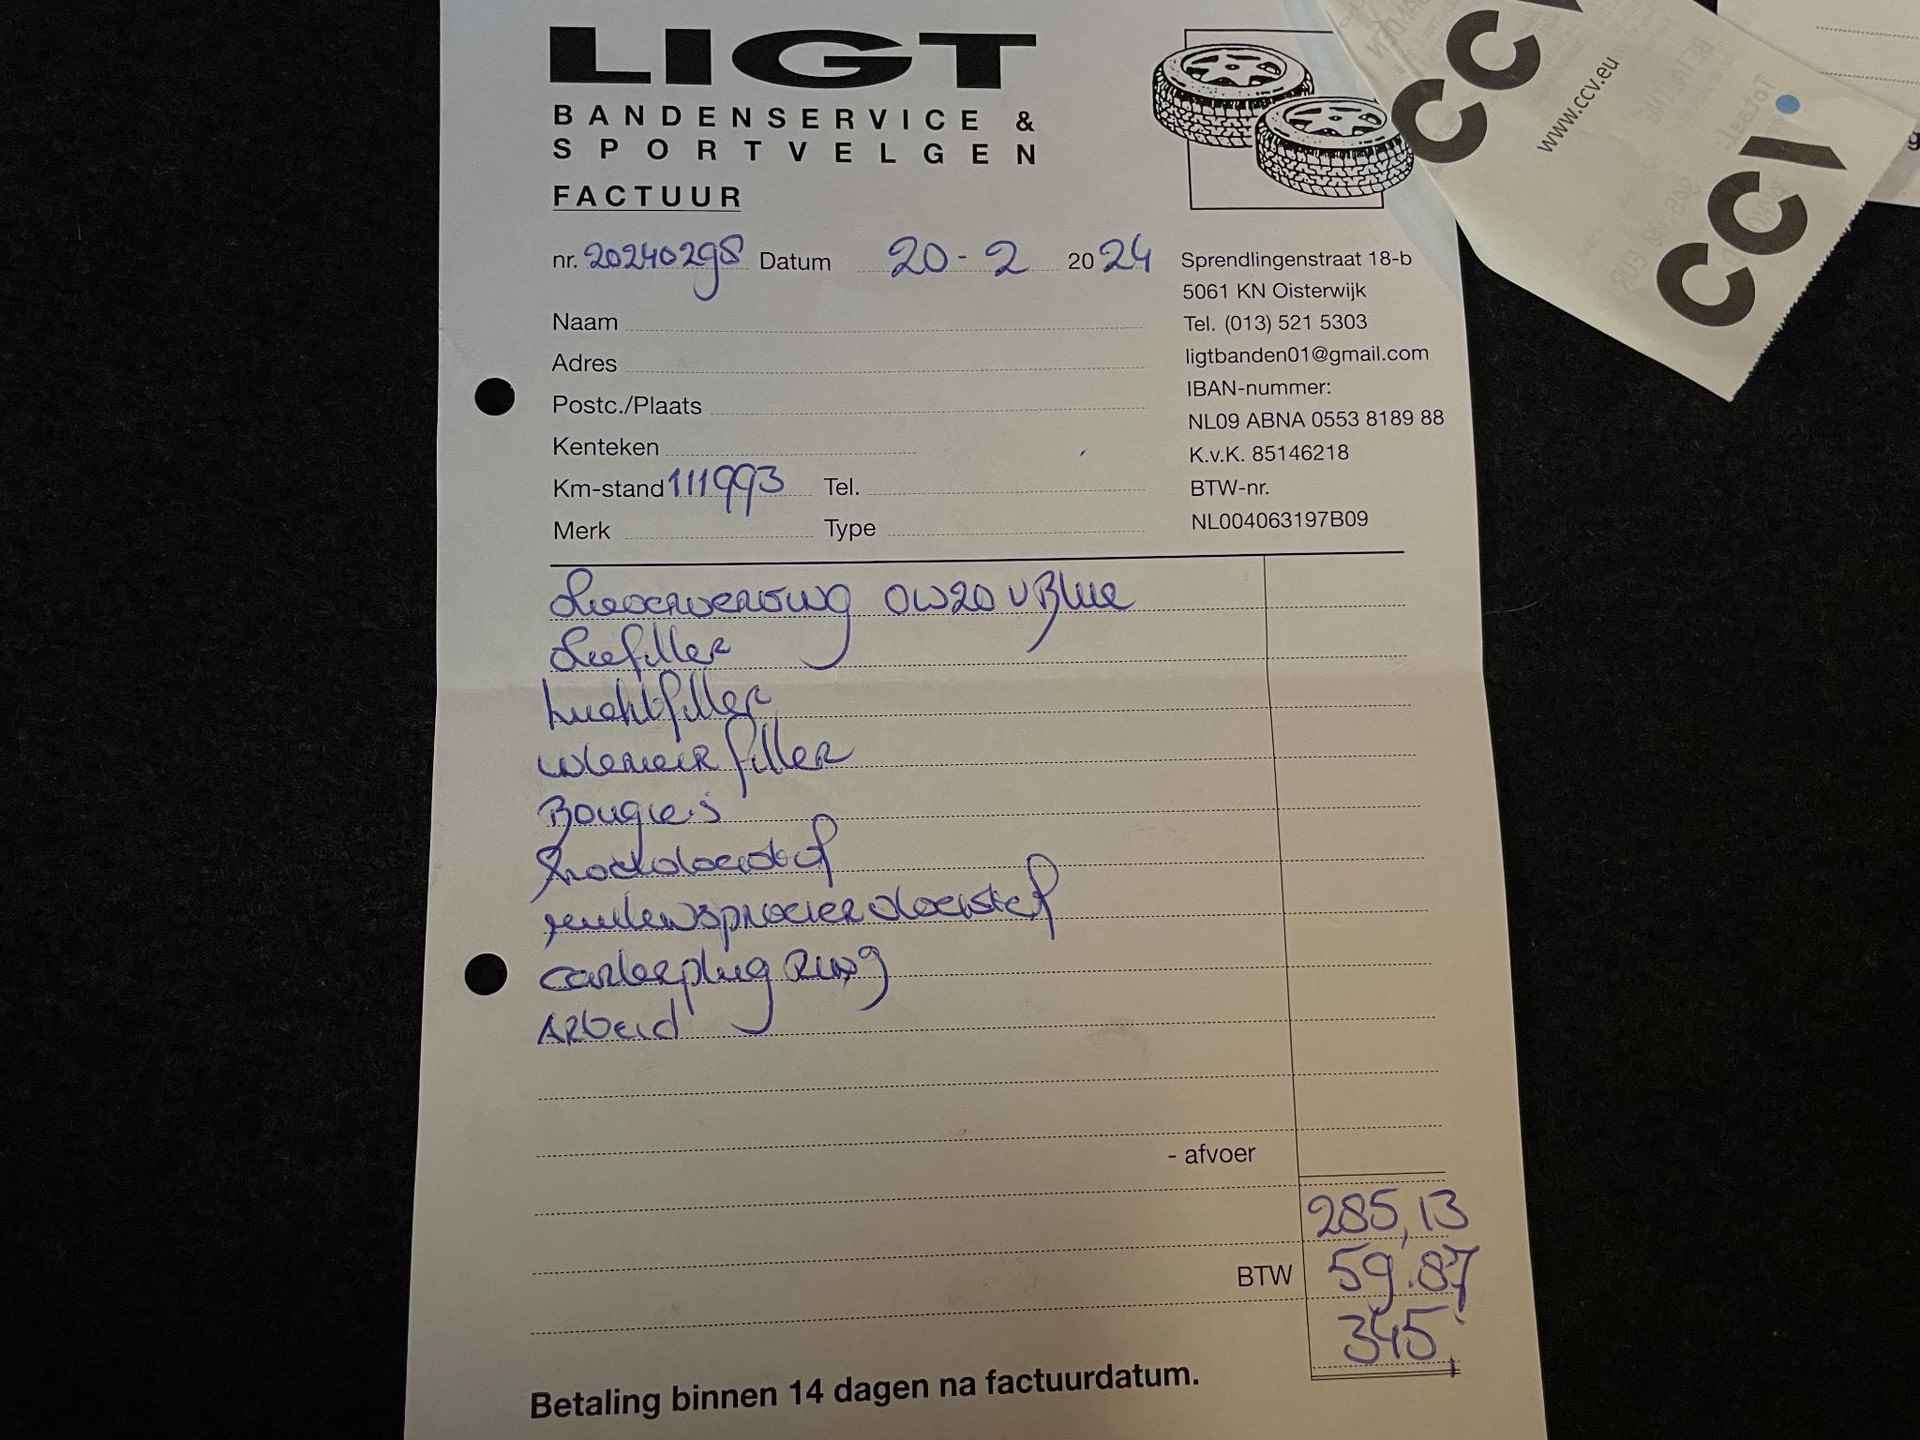 LIGT
BANDENSERVICE &
SPORTVELGEN
FACTUUR
nr. 20240298 Datum 20-2 2024
Naam
Adres
Postc./Plaats
Kenteken
Km-stand 111993 Tel.
Merk Type
Sprendlingenstraat 18-b
5061 KN Oisterwijk
Tel. (013) 521 5303
ligtbanden01@gmail.com
IBAN-nummer:
NL09 ABNA 0553 8189 88
K.v.K. 85146218
BTW-nr.
NL004063197B09
0W20 VBlue
Oliefilter
Luchtfilter
filter
Bougies
vloeistof
ruitensproeier vloeistof
carterplug Ring
Arbeid
- afvoer
285,13
BTW 59.87
345,
Betaling binnen 14 dagen na factuurdatum.
CCV
www.ccv.eu
CCV